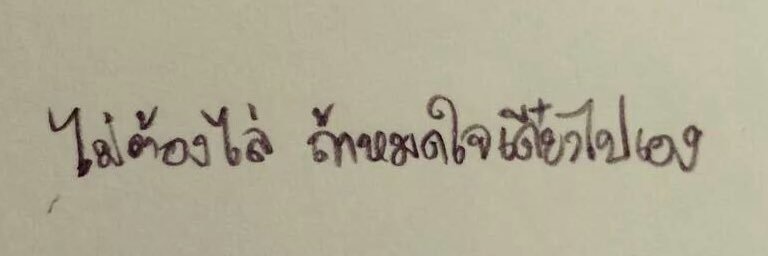 ไม่ต้องไล่ ถ้าหมดใจเดี๋ยวไปเอง